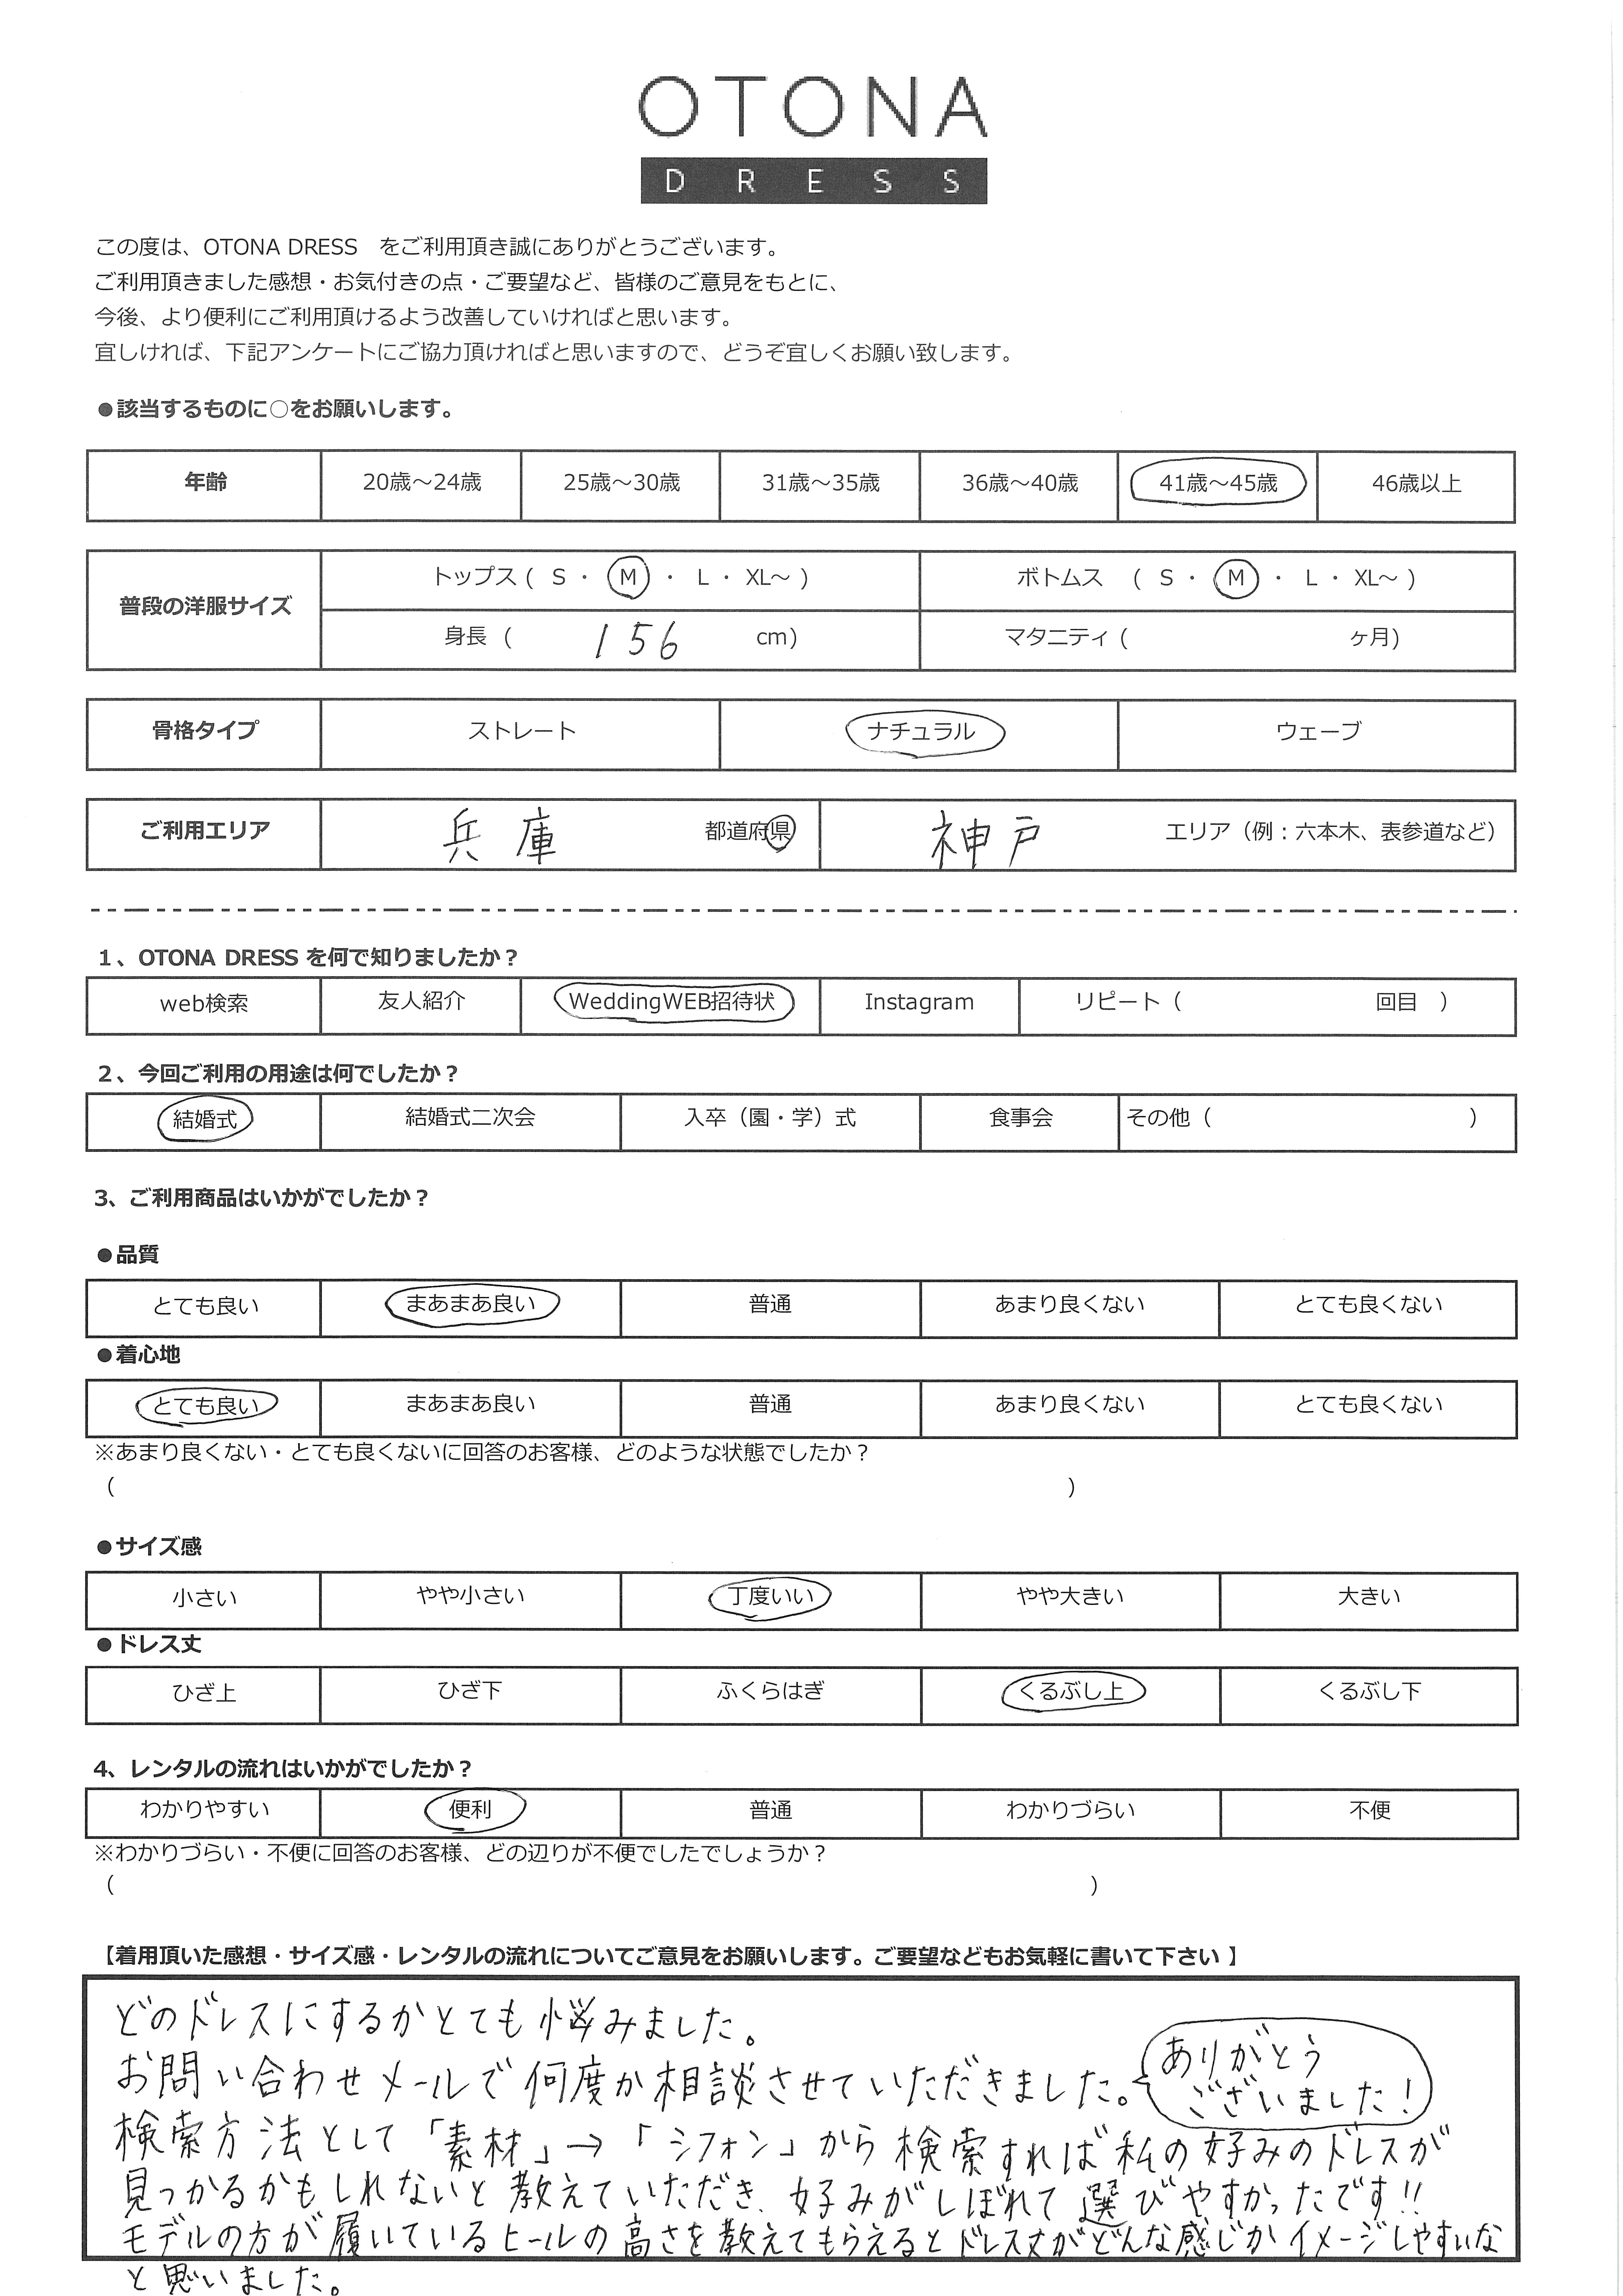 OTONA
DRESS
この度は、OTONA DRESS　をご利用頂き誠にありがとうございます。
ご利用頂きました感想・お気付きの点・ご要望など、皆様のご意見をもとに、
今後、より便利にご利用頂けるよう改善していければと思います。
宜しければ、下記アンケートにご協力頂ければと思いますので、どうぞ宜しくお願い致します。
●該当するものに○をお願いします。
年齢 20歳～24歳 25歳～30歳 31歳～35歳 36歳～40歳 41歳～45歳 46歳以上
普段の洋服サイズ トップス ( S ・ M ・ L ・ XL～ ) ボトムス ( S ・ M ・ L ・ XL～ )
身長 ( 156 cm) マタニティ ( ヶ月)
骨格タイプ ストレート ナチュラル ウェーブ
ご利用エリア 兵庫 都道府県 神戸 エリア（例：六本木、表参道など）
1、OTONA DRESS を何で知りましたか？
web検索 友人紹介 WeddingWEB招待状 Instagram リピート（ 回目 ）
2、今回ご利用の用途は何でしたか？
結婚式 結婚式二次会 入卒（園・学）式 食事会 その他（ ）
3、ご利用商品はいかがでしたか？
●品質
とても良い まあまあ良い 普通 あまり良くない とても良くない
●着心地
とても良い まあまあ良い 普通 あまり良くない とても良くない
※あまり良くない・とても良くないに回答のお客様、どのような状態でしたか？
（ ）
●サイズ感
小さい やや小さい 丁度いい やや大きい 大きい
●ドレス丈
ひざ上 ひざ下 ふくらはぎ くるぶし上 くるぶし下
4、レンタルの流れはいかがでしたか？
わかりやすい 便利 普通 わかりづらい 不便
※わかりづらい・不便に回答のお客様、どの辺りが不便でしたでしょうか？
（ ）
【着用頂いた感想・サイズ感・レンタルの流れについてご意見をお願いします。ご要望などもお気軽に書いて下さい 】
どのドレスにするかとても悩みました。
お問い合わせメールで何度か相談させていただきました。
ありがとう
ございました！
検索方法として「素材」→「シフォン」から検索すれば私の好みのドレスが
見つかるかもしれないと教えていただき、好みがしぼれて選びやすかったです!!
モデルの方が履いているヒールの高さを教えてもらえるとドレス丈がどんな感じかイメージしやすいな
と思いました。